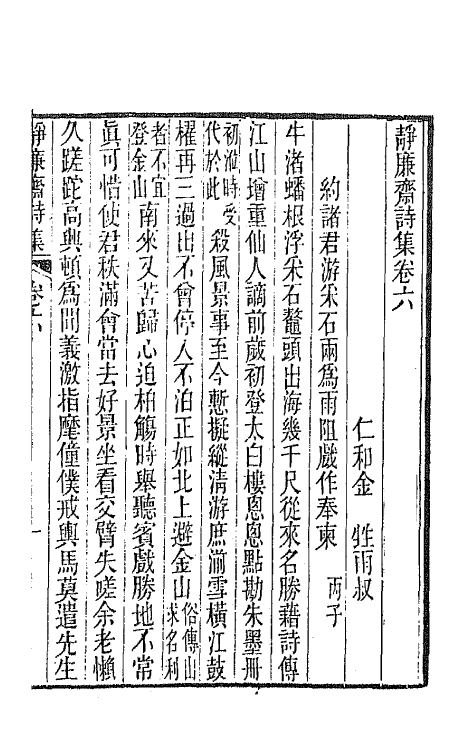 靜廉齋詩集卷六
仁和金　甡雨叔
約諸君游采石兩爲雨阻戲作奉柬　丙子
牛渚蟠根浮采石鼇頭出海幾千尺從來名勝藉詩傳
江山增重仙人謫前歲初登太白樓恩恩點勘朱墨冊
初泄時受代於此殺風景事至今慙擬縱淸游庶湔雪橫江鼓
櫂再三過山不曾停人不泊正如北上避金山俗傳山求名利
者不宜登金山南來又苦歸心迫柏觴時舉聽賓戲勝地不常
眞可惜使君秩滿會當去好景坐看交臂失嗟余老懶
久蹉跎高興頓爲閒義激指麾僮僕戒輿馬莫遣先生
靜廉齋詩集　卷六　一